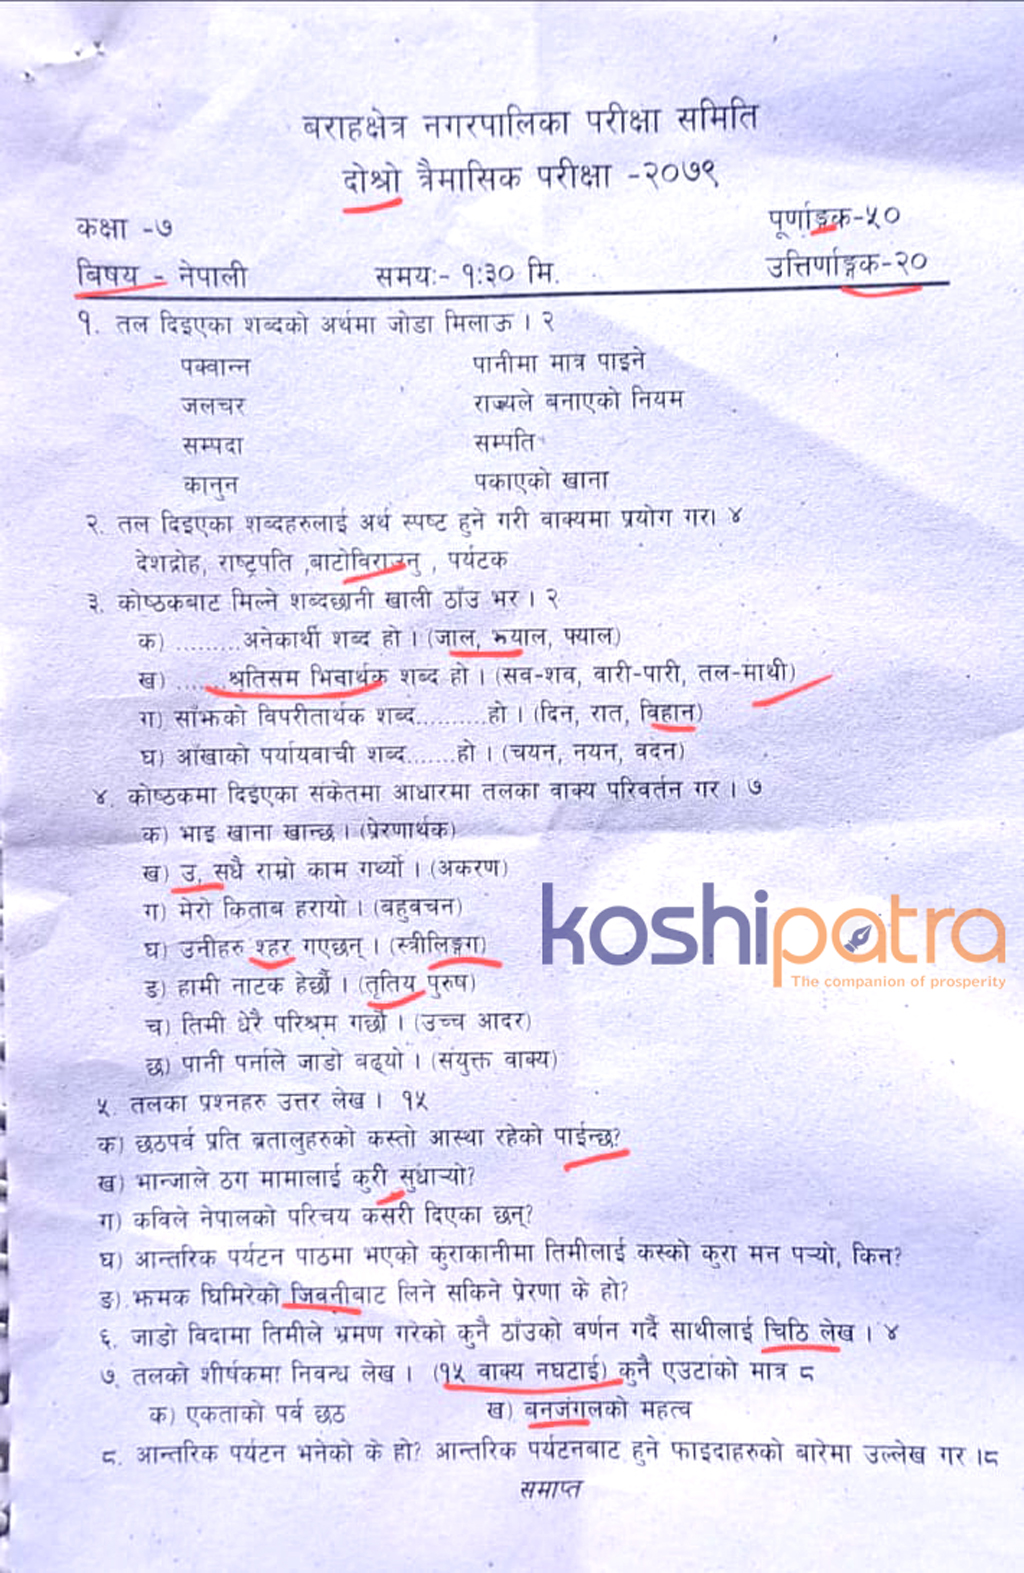 बराहक्षेत्र नगरपालिका परीक्षा समिति
दोश्रो त्रैमासिक परीक्षा -२०७९
कक्षा -७
पूर्णाङ्कक-५०
बिषय - नेपाली समयः- १:३० मि. उत्तिर्णाङ्गक-२०
१. तल दिइएका शब्दको अर्थमा जोडा मिलाऊ । २
पक्वान्न पानीमा मात्र पाइने
जलचर राज्यले बनाएको नियम
सम्पदा सम्पति
कानुन पकाएको खाना
२. तल दिइएका शब्दहरुलाई अर्थ स्पष्ट हुने गरी वाक्यमा प्रयोग गर। ४
देशद्रोह, राष्ट्रपति ,बाटोविराउनु , पर्यटक
३. कोष्ठकबाट मिल्ने शब्दछानी खाली ठाँउ भर । २
क) .........अनेकार्थी शब्द हो । (जाल, भ्याल, फ्याल)
ख) ...... श्रृतिसम भिन्नार्थक शब्द हो । (सव-शव, वारी-पारी, तल-माथी)
ग) साँझको विपरीतार्थक शब्द..........हो । (दिन, रात, विहान)
घ) आँखाको पर्यायवाची शब्द.......हो । (चयन, नयन, वदन)
४. कोष्ठकमा दिइएका संकेतमा आधारमा तलका वाक्य परिवर्तन गर । ७
क) भाइ खाना खान्छ । (प्रेरणार्थक)
ख) उ, सधै राम्रो काम गर्थ्यो । (अकरण)
ग) मेरो किताब हरायो । (वहुवचन)
घ) उनीहरु श्हर गएछन् । (स्त्रीलिङ्गग)
ङ) हामी नाटक हेर्छौ । (तृतिय पुरुष)
च) तिमी धेरै परिश्रम गर्छौ । (उच्च आदर)
छ) पानी पर्नाले जाडो वढ्यो । (संयुक्त वाक्य)
५. तलका प्रश्नहरु उत्तर लेख । १५
क) छठपर्व प्रति ब्रतालुहरुको कस्तो आस्था रहेको पाईन्छ?
ख) भान्जाले ठग मामालाई कुरी सुधार्‍यो?
ग) कविले नेपालको परिचय कसरी दिएका छन्?
घ) आन्तरिक पर्यटन पाठमा भएको कुराकानीमा तिमीलाई कस्को कुरा मन पर्‍यो, किन?
ङ) झमक घिमिरेको जिवनीबाट लिने सकिने प्रेरणा के हो?
६. जाडो विदामा तिमीले भ्रमण गरेको कुनै ठाँउको वर्णन गर्दै साथीलाई चिठि लेख । ४
७. तलको शीर्षकमा निवन्ध लेख । (१५ वाक्य नघटाई) कुनै एउटाको मात्र ८
क) एकताको पर्व छठ ख) बनजंगलको महत्व
८. आन्तरिक पर्यटन भनेको के हो? आन्तरिक पर्यटनबाट हुने फाइदाहरुको बारेमा उल्लेख गर ।८
समाप्त
koshipatra
The companion of prosperity